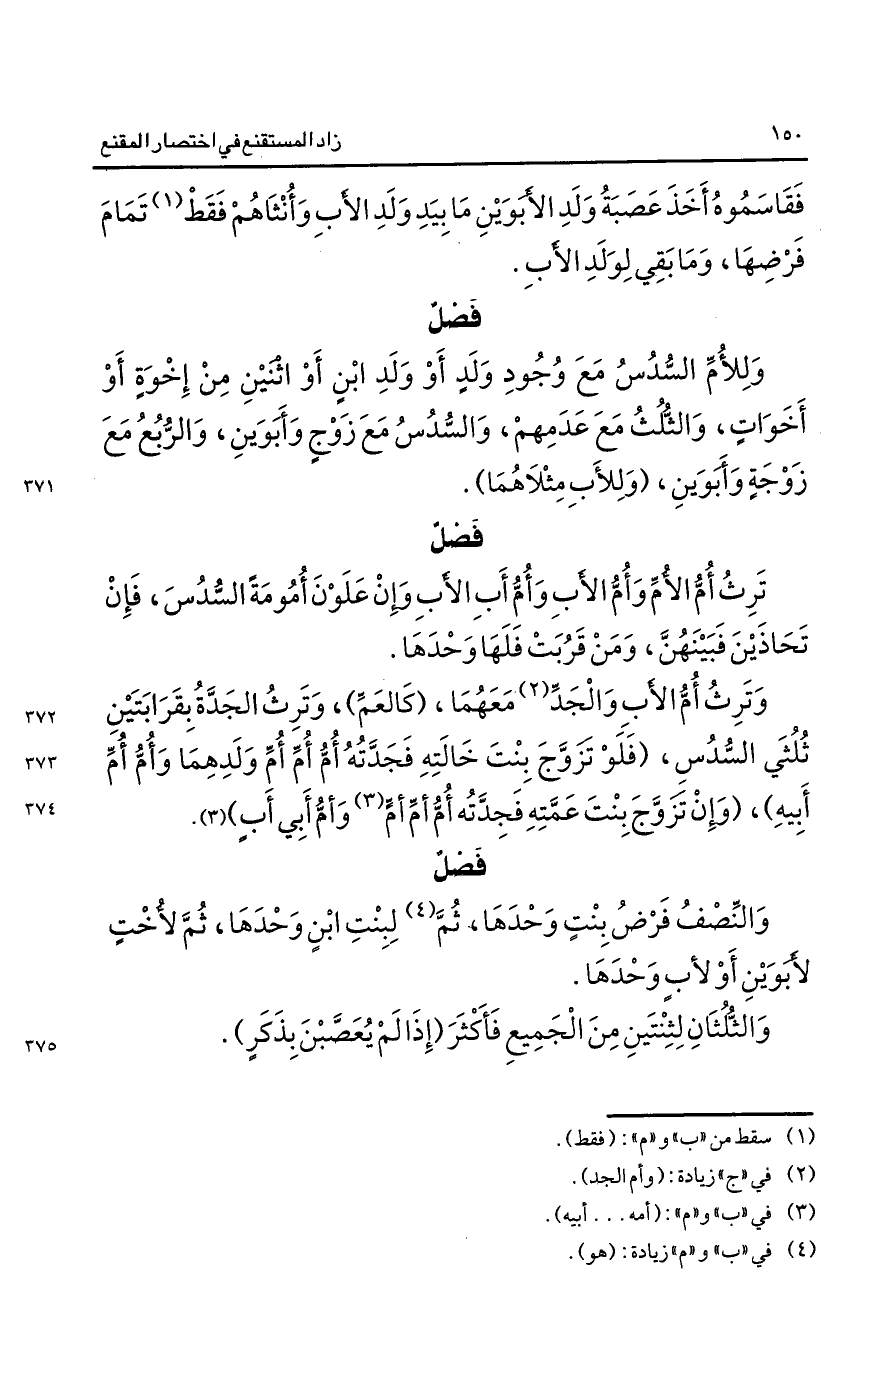 ١٥٠ زاد المستقنع في اختصار المقنع
فَقَاسَمُوهُ أَخَذَ عَصَبَةُ وَلَدِ الأَبَوَيْنِ مَا بِيَدِ وَلَدِ الأَبِ وَأُنْثَاهُمْ فَقَطْ(١) تَمَامَ
فَرْضِهَا، وَمَا بَقِي لِوَلَدِ الأَبِ.
فَصْلٌ
وَلِلأُمِّ السُّدُسُ مَعَ وُجُودِ وَلَدٍ أَوْ وَلَدِ ابْنٍ أَوْ اثْنَيْنِ مِنْ إِخْوَةٍ أَوْ
أَخَوَاتٍ، وَالثُّلُثُ مَعَ عَدَمِهِمْ، وَالسُّدُسُ مَعَ زَوْجٍ وَأَبَوَينِ، وَالرُّبُعُ مَعَ
زَوْجَةٍ وَأَبَوَينِ، (وَلِلأَبِ مِثْلاَهُمَا). ٣٧١
فَصْلٌ
تَرِثُ أُمُّ الأُمِّ وَأُمُّ الأَبِ وَأُمُّ أَبِ الأَبِ وَإِنْ عَلَوْنَ أُمُومَةً السُّدُسَ، فَإِنْ
تَحَاذَيْنَ فَبَيْنَهُنَّ، وَمَنْ قَرُبَتْ فَلَهَا وَحْدَهَا.
وَتَرِثُ أُمُّ الأَبِ وَالْجَدِّ(٢) مَعَهُمَا، (كَالعَمِّ)، وَتَرِثُ الجَدَّةُ بِقَرَابَتَيْنِ ٣٧٢
ثُلُثَي السُّدُسِ، (فَلَوْ تَزَوَّجَ بِنْتَ خَالَتِهِ فَجَدَّتُهُ أُمُّ أُمِّ أُمِّ وَلَدِهِمَا وَأُمُّ أُمِّ ٣٧٣
أَبِيهِ)، (وَإِنْ تَزَوَّجَ بِنْتَ عَمَّتِهِ فَجِدَّتُه أُمُّ أمِّ أمٍّ(٣) وَأمُّ أَبِي أَبٍ)(٣). ٣٧٤
فَصْلٌ
وَالنِّصْفُ فَرْضُ بِنْتٍ وَحْدَهَا، ثُمَّ(٤) لِبِنْتِ ابْنٍ وَحْدَهَا، ثُمَّ لأُخْتٍ
لأَبَوَيْنِ أَوْ لأبٍ وَحْدَهَا.
وَالثُّلُثَانِ لِثِنْتَينِ مِنَ الْجَمِيعِ فَأَكْثَرَ (إِذَا لَمْ يُعَصَّبْنَ بِذَكَرٍ). ٣٧٥
(١) سقط من «ب» و «م»: (فقط).
(٢) في «ج» زيادة: (وأم الجد).
(٣) في «ب» و «م»: (أمه... أبيه).
(٤) في «ب» و «م» زيادة: (هو).